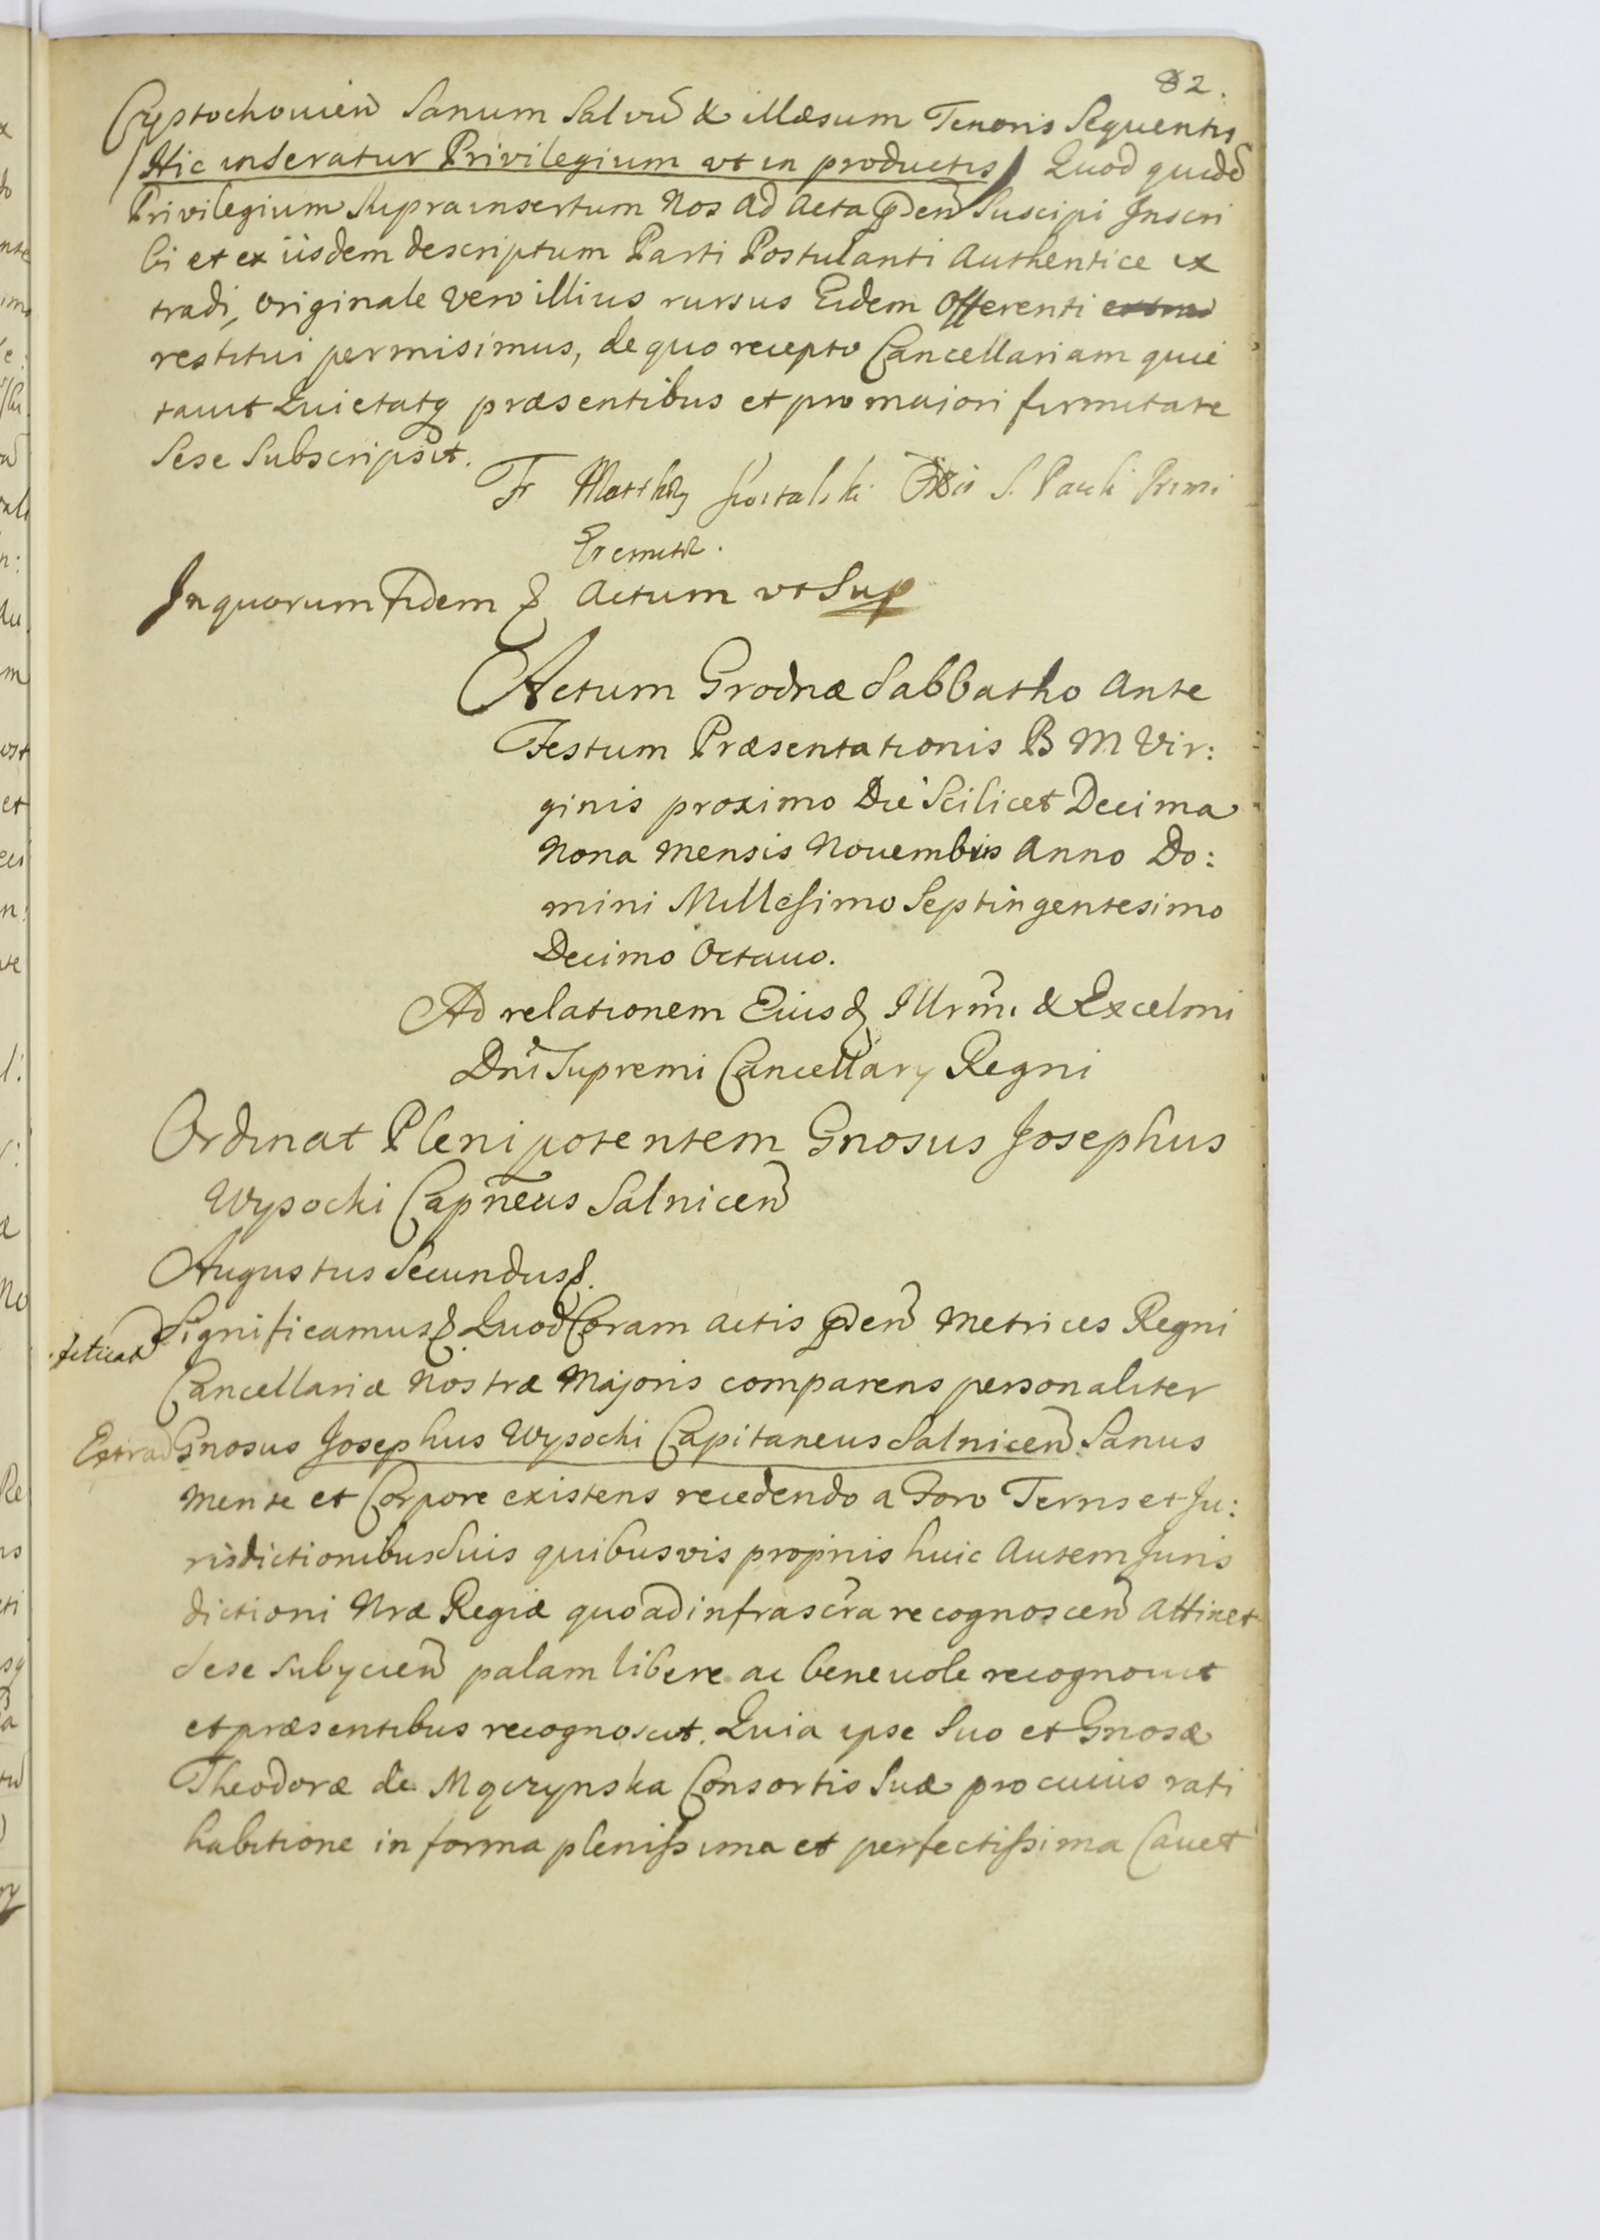 82.
Cęstochouien Sanum Salvu & illæsum Tenoris Sequentis
(Hic inseratur Privilegium ut in productis) Quod quide
Privilegium Suprainsertum Nos ad Acta pден Suscipi Inscri
bi et ex iisdem descriptum Parti Postulanti Authentice ex
tradi, originale vero illius rursus Eidem Offerenti
restitui permisimus, de quo recepto Cancellariam quie
tauit Quietatq præsentibus et pro maiori firmitate
Sese Subscripsit.
Fr Matthæ S. Pauli Primi
Eremitæ.
In quorum fidem & Actum ut Sup
Actum Grodnæ Sabbatho Ante
Festum Præsentationis B M Vir:
ginis proximo Die Scilicet Decima
Nona Mensis Nouembris Anno Do:
mini Millesimo Septingentesimo
Decimo Octauo.
Ad relationem Eiusd Illrmi & Excelmi
Dni Supremi Cancellary Regni
Ordinat Plenipotentem Gnosus Josephus
Wysocki Capneus Salnicen
Augustus Secundus &.
Significamus &. Quod Coram Actis pden Metrices Regni
Cancellariæ Nostræ Majoris comparens personaliter
Extrad Gnosus Josephus Wysocki Capitaneus Salnicen Sanus
Mente et Corpore existens recedendo a Foro Terris et Ju:
risdictionibus Suis quibusvis propriis huic Autem Juris
dictioni Nræ Regiæ quo ad infrascra recognoscen Attinet
Sese Subycien palam libere ac beneuole recognouit
et præsentibus recognoscit. Quia ipse Suo et Gnosæ
Theodoræ de Mączynska Consortis Suæ pro cuius rati
habitione in forma plenissima et perfectissima Cauet